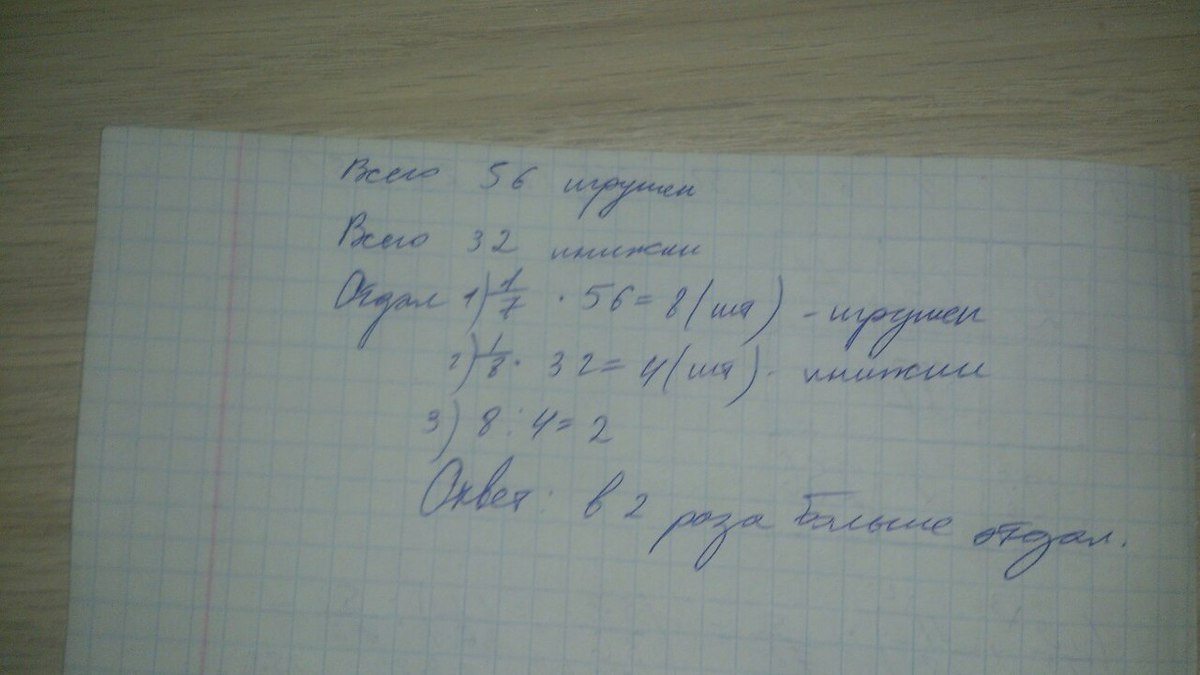 Всего 56 игрушек
Всего 32 книжки
Отдал 1) 1/7 · 56 = 8 (шт) - игрушек
2) 1/8 · 32 = 4 (шт) - книжки
3) 8 : 4 = 2
Ответ: в 2 раза больше отдал.